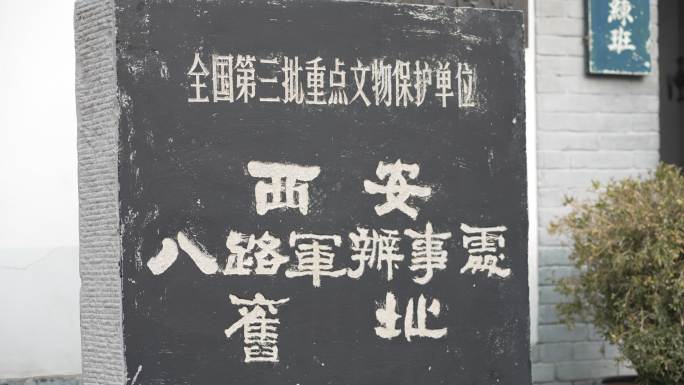 全国第三批重点文物保护单位
西安
八路軍辦事處
舊址
練班